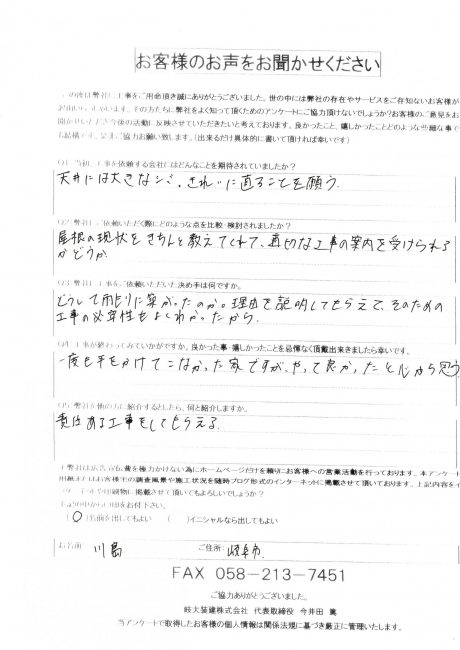 お客様のお声をお聞かせください
の度は弊社に工事をご用命頂き誠にありがとうございました。世の中には弊社の存在やサービスをご存知ないお客様が
いらっしゃいます。その方たちに弊社をよく知って頂くためのアンケートにご協力頂けないでしょうか?お客様のご意見をお
聞かせいただき今後の活動に反映させていただきたいと考えております。良かったこと、嬉しかったことどのような些細な事で
も結構です。是非ご協力お願い致します。(出来るだけ具体的に書いて頂ければ幸いです)
Q1 当初、工事を依頼する会社にはどんなことを期待されていましたか?
天井には大きなシミ、きれいに直ることを願う。
Q2 弊社にご依頼いただく際にどのような点を比較・検討されましたか?
屋根の現状をきちんと教えてくれて、適切な工事の案内を受けられる
かどうか
Q3 弊社に工事をご依頼いただいた決め手は何ですか。
どうして雨もりに繋がったのか。理由を説明してもらえて、そのための
工事の必要性もよくわかったから。
Q4 工事が終わってみていかがですか。良かった事・嬉しかったことを忌憚なく頂戴出来きましたら幸いです。
一度も手をかけてこなかった家ですが、やって良かったと心から思う
Q5 弊社を他の方に紹介するとしたら、何と紹介しますか。
責任ある工事をしてもらえる
弊社は広告宣伝費を極力かけない為にホームページだけを頼りにお客様への営業活動を行っております。本アンケート
用紙またはお客様宅の調査風景や施工状況を随時ブログ形式のインターネットに掲載させて頂いております。上記内容をイ
ンターネットや印刷物に掲載させて頂いてもよろしいでしょうか?
(○)名前を出してもよい ( )イニシャルなら出してもよい
お名前 川島 ご住所: 岐阜市
FAX 058-213-7451
ご協力ありがとうございました。
岐大装建株式会社 代表取締役 今井田 篤
当アンケートで取得したお客様の個人情報は関係法規に基づき厳正に管理いたします。